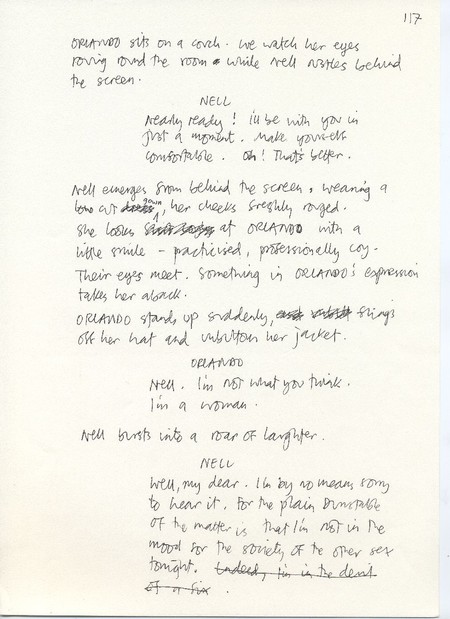 117
ORLANDO sits on a couch. We watch her eyes
roving round the room while Nell rustles behind
the screen.
NELL
Nearly ready! I'll be with you in
just a moment. Make yourself
comfortable. Oh! That's better.
Nell emerges from behind the screen, wearing a
low cut gown, her cheeks freshly rouged.
She looks at ORLANDO with a
little smile - practised, professionally coy.
Their eyes meet. Something in ORLANDO's expression
takes her aback.
ORLANDO stands up suddenly, flings
off her hat and unbuttons her jacket.
ORLANDO
Nell. I'm not what you think.
I'm a woman.
Nell bursts into a roar of laughter.
NELL
Well, my dear. I'm by no means sorry
to hear it. For the plain Dunstable
of the matter is that I'm not in the
mood for the society of the other sex
tonight. Indeed, I'm in the devil
of a fix.